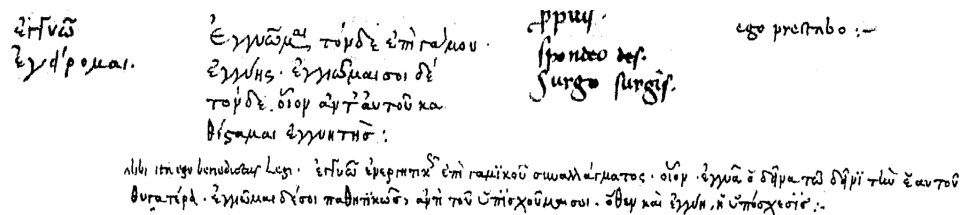 ἐγγυῶ
Ἐγείρομαι.
Ἐγγυῶμαι τόνδε ἐπὶ γάμου.
ἐγγύης. ἐγγυῶμαι σοι δέ
τόνδε. οἷον ἀντ' αὐτοῦ κα
θίσαμαι ἐγγυητής:
ppuis.
spondeo des.
Surgo surgis.
ego prestabo:~
Alibi ego benedictus Legi. ἐγγυῶ ἐνεργητικῶς ἐπὶ γαμικοῦ συναλλάγματος. οἷον. ἐγγυᾶ ὁ δεῖνα τῶ δεῖνι τὴν ἑαυτοῦ
θυγατέρα. ἐγγυῶμαι δέ σοι παθητικῶς, ἀντὶ τοῦ ὑπισχοῦμαι σοι. ὅθεν καὶ ἐγγύη, ἡ ὑπόσχεσις:~